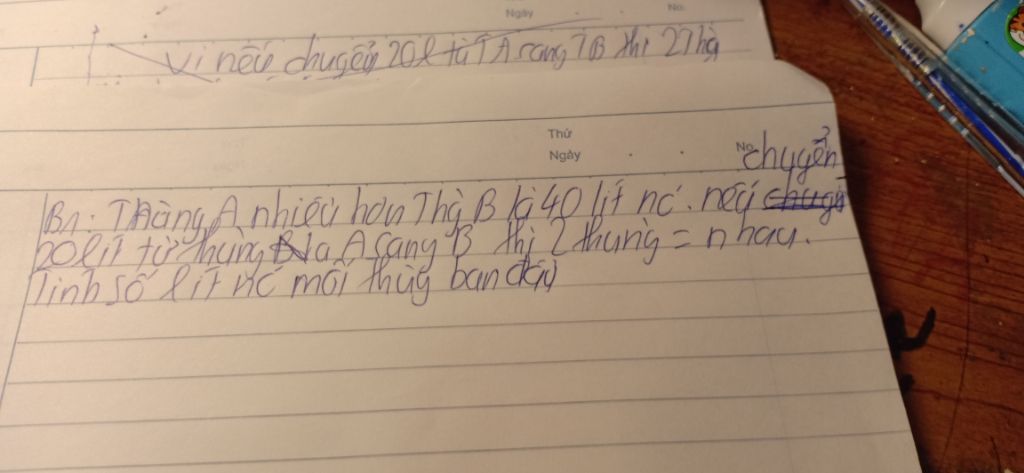 Ngày No.
Vì nếu chuyển 20l từ T A sang T B thì 2 Thg
Thứ
Ngày No. chuyển
Bn: Thùng A nhiều hơn Thg B là 40 lít nc. nếu
20 lít từ thùng A sang B thì 2 thùng = nhau.
Tính số lít nc mỗi thùg ban đầu